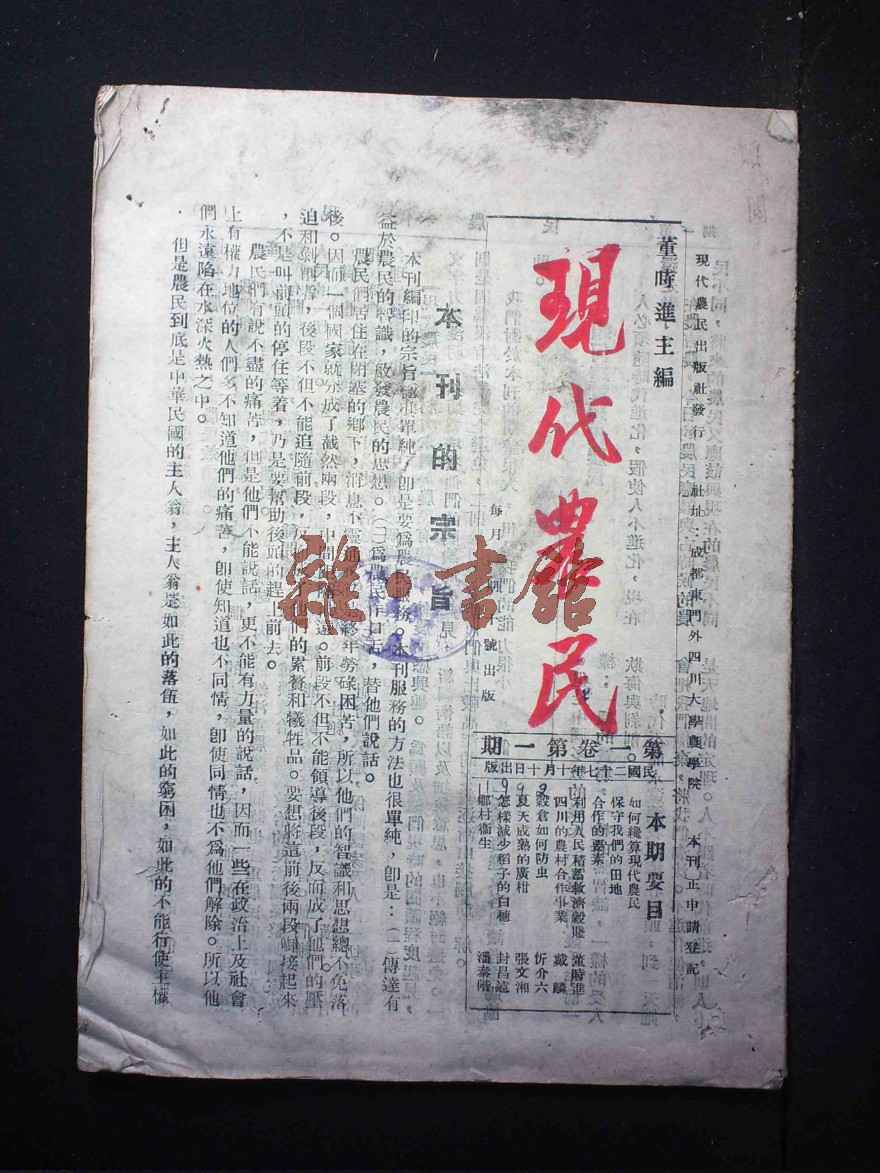 現代農民出版社發行 社址：成都東門外四川大學農學院 本刊正申請登記
董時進主編
現代農民
每月 號出版
第一卷第一期
民國二十七年十一月十日出版
本期要目
如何纔算現代農民
保守我們的田地
合作的要素
利用人民積蓄救濟穀賤 董時進
四川的農村合作事業 戴麟
穀倉如何防虫 忻介六
夏天成熟的廣柑 張文湘
怎樣減少稻子的白穗 封昌遠
鄉村衞生 潘泰階
本刊的宗旨
本刊編印的宗旨 單純，卽是要爲農民服務。本刊服務的方法也很單純，卽是：（一）傳達有
益於農民的智識，啟發農民的思想。（二）爲農民作口舌，替他們說話。
農民們居住在閉塞的鄉下，消息不靈通， 終年勞碌困苦，所以他們的智識和思想總不免落
後。因而一個國家就分成了截然兩段，中間 遠。前段不但不能領導後段，反而成了他們的壓
迫和剝削者，後段不但不能追隨前段，反 他們的累贅和犧牲品。要想將這前後兩段啣接起來
，不是叫前頭的停住等着，乃是要幫助後頭的趕上前去。
農民們有說不盡的痛苦，但是他們不能說話，更不能有力量的說話，因而一些在政治上及社會
上有權力地位的人們多不知道他們的痛苦，卽使知道也不同情，卽使同情也不爲他們解除。所以他
們永遠陷在水深火熱之中。
但是農民到底是中華民國的主人翁，主人翁是如此的落伍，如此的窮困，如此的不能行使主權
雜·書館